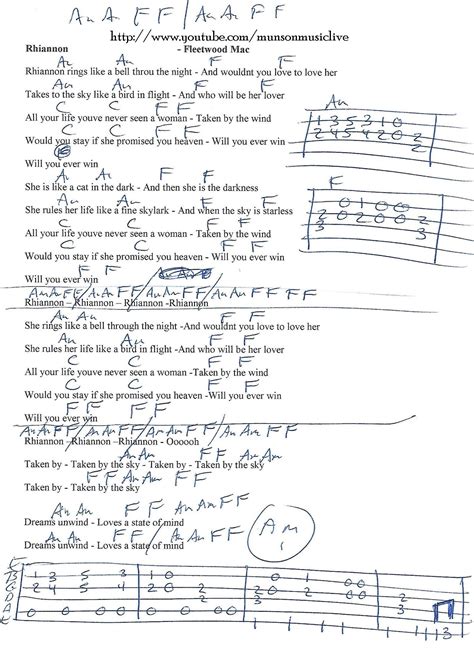 Am Am F F / Am Am F F
http://www.youtube.com/munsonmusiclive
Rhiannon - Fleetwood Mac
Am Am F F
Rhiannon rings like a bell throu the night - And wouldnt you love to love her
Am Am F F
Takes to the sky like a bird in flight - And who will be her lover
C C F F
All your life youve never seen a woman - Taken by the wind
C C F F
Would you stay if she promised you heaven - Will you ever win
Will you ever win
Am Am F F
She is like a cat in the dark - And then she is the darkness
Am Am F F
She rules her life like a fine skylark - And when the sky is starless
C C F F
All your life youve never seen a woman - Taken by the wind
C C F F
Would you stay if she promised you heaven - Will you ever win
F F
Will you ever win
Am Am F F / Am Am F F / Am Am F F / Am Am F F F F
Rhiannon – Rhiannon – Rhiannon -Rhiannon
Am Am F F
She rings like a bell through the night -And wouldnt you love to love her
Am Am F F
She rules her life like a bird in flight -And who will be her lover
C C F F
All your life youve never seen a woman -Taken by the wind
C C F F
Would you stay if she promised you heaven -Will you ever win
F F F F
Will you ever win
Am Am F F / Am Am F F / Am Am F F / Am Am F F
Rhiannon –Rhiannon –Rhiannon - Oooooh
Am Am F F Am Am
Taken by - Taken by the sky - Taken by - Taken by the sky
F F Am Am F F
Taken by - Taken by the sky
Am Am F F Am Am F F
Dreams unwind - Loves a state of mind
Am Am F F / Am Am F F
Dreams unwind - Loves a state of mind
Am
F
Am